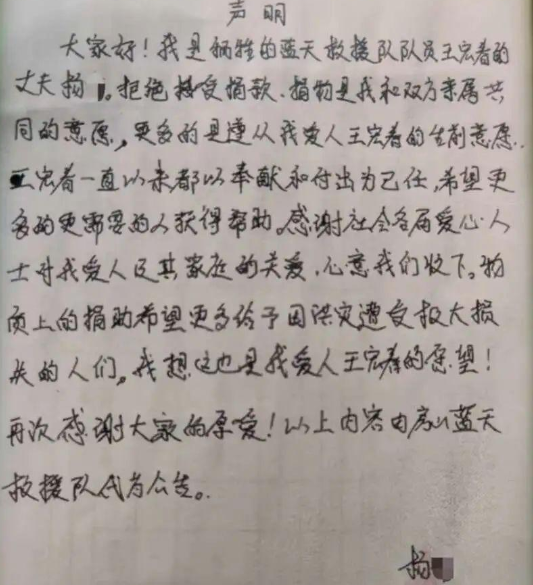 声明
大家好！我是牺牲的蓝天救援队队员王宏春的
丈夫杨。拒绝接受捐款、捐物是我和双方亲属共
同的意愿，更多的是遵从我爱人王宏春的生前意愿.
王宏春一直以来都以奉献和付出为己任，希望更
多的更需要的人获得帮助。感谢社会各届爱心人
士对我爱人及其家庭的关爱，心意我们收下。物
质上的捐助希望更多给予因洪灾遭受极大损
失的人们，我想这也是我爱人王宏春的愿望！
再次感谢大家的厚爱！以上内容由房山蓝天
救援队代为公告。
杨